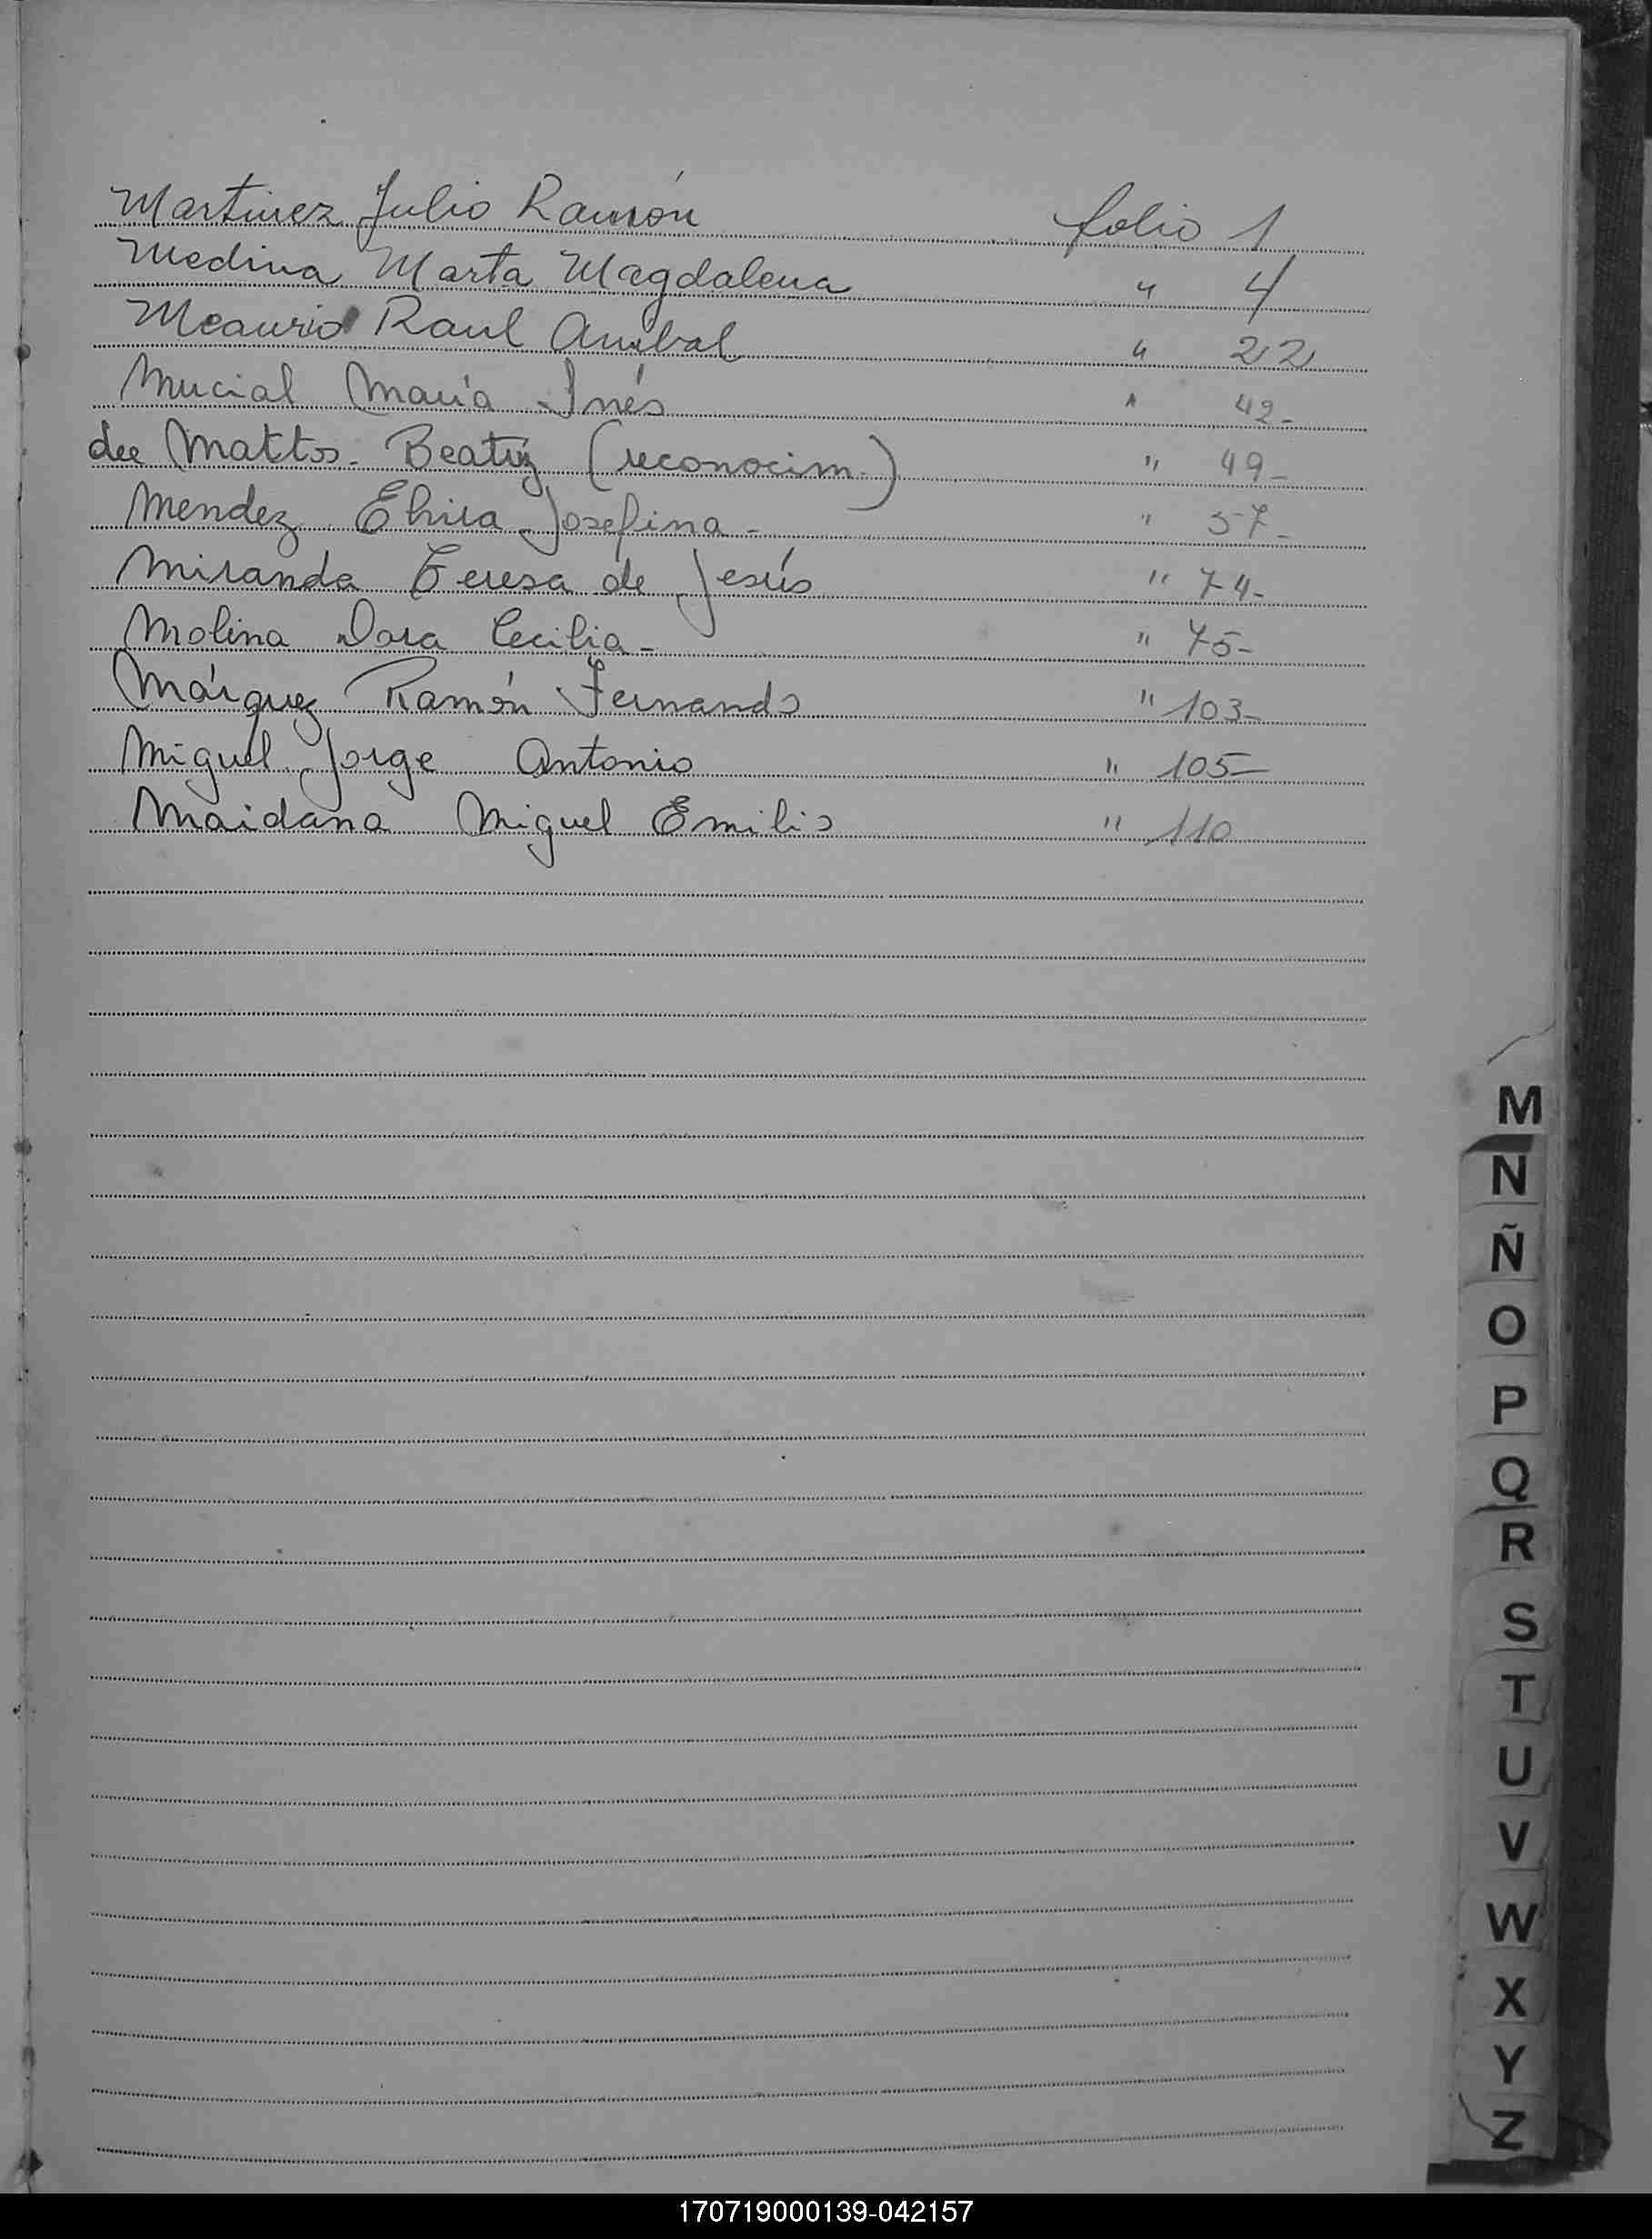 Martinez Julio Ramón folio 1
Medina Marta Magdalena " 4
Meaurio Raul Anibal " 22
Mucial María Inés " 42-
de Mattos- Beatriz (reconocim.) " 49-
Mendez Elvira Josefina- " 57-
Miranda Teresa de Jesús " 74-
Molina Dora Cecilia- " 75-
Márquez Ramón Fernando " 103-
Miguel Jorge Antonio " 105-
Maidana Miguel Emilio " 110
M
N
Ñ
O
P
Q
R
S
T
U
V
W
X
Y
Z
170719000139-042157